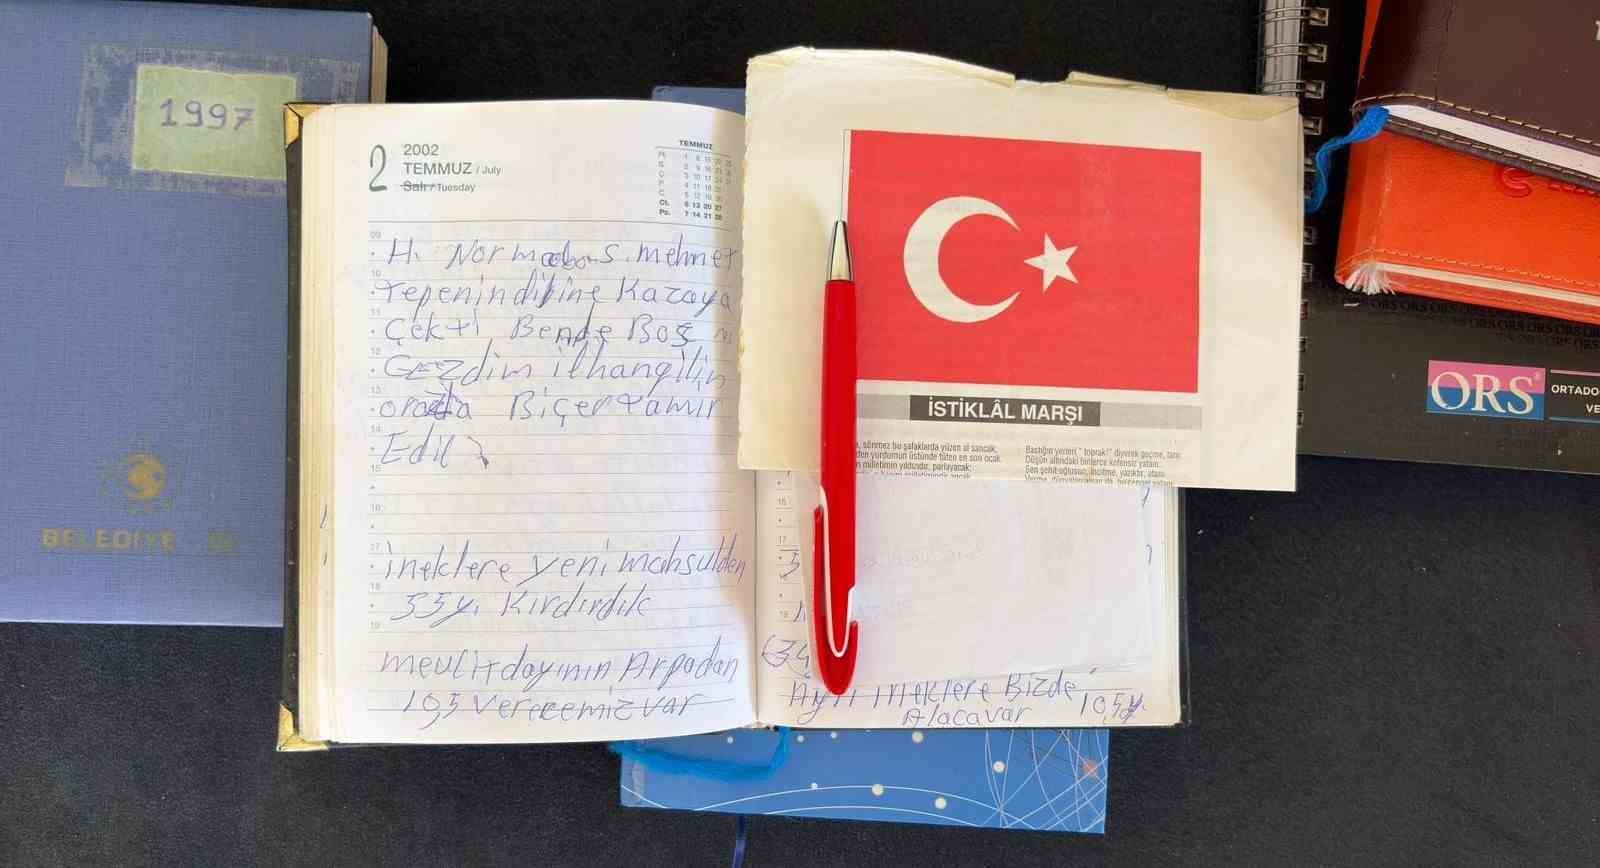 1997
BELEDİYE
2
2002
TEMMUZ / July
Salı / Tuesday
TEMMUZ
Pt. 1 8 15 22 29
S. 2 9 16 23 30
Ç. 3 10 17 24 31
P. 4 11 18 25
C. 5 12 19 26
Ct. 6 13 20 27
Pz. 7 14 21 28
09
H. Normal S. mehmet
10
tepenindibine Kazaya
11
Çekti Bende Boş
12
GEZdim ilhangilin
13
orada Biçer tamir
14
Edil
15
16
17
ineklere yeni mahsulden
18
55y. Kırdırdık
19
mevlitdayının Arpadan
10,5 verecemiz var
İSTİKLÂL MARŞI
sönmez bu şafaklarda yüzen al sancak;
den yurdumun üstünde tüten en son ocak
n milletimin yıldızıdır, parlayacak;
Bastığın yerleri " toprak!" diyerek geçme, tanı:
Düşün altındaki binlerce kefensiz yatanı.
Sen şehit oğlusun, incitme, yazıktır, atanı:
Verme, dünyaları alsan da, bu cennet vatanı
15
17
5
18
(34
ineklere Bizde
Alacavar 10,5y.
ORS®
ORTADO
VE
ORS ORS ORS ORS ORS ORS